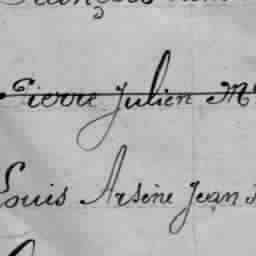 Pierre Julien M
Louis Arsène Jean